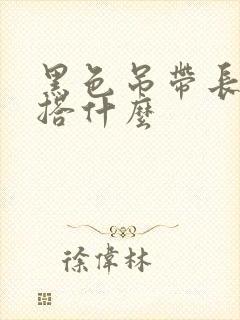 黑色吊帶長
搭什麼
徐偉林